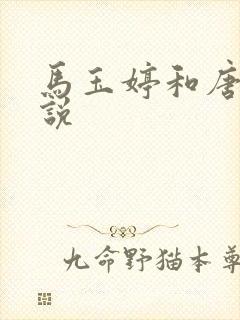 馬玉婷和唐
說
九命野猫本尊